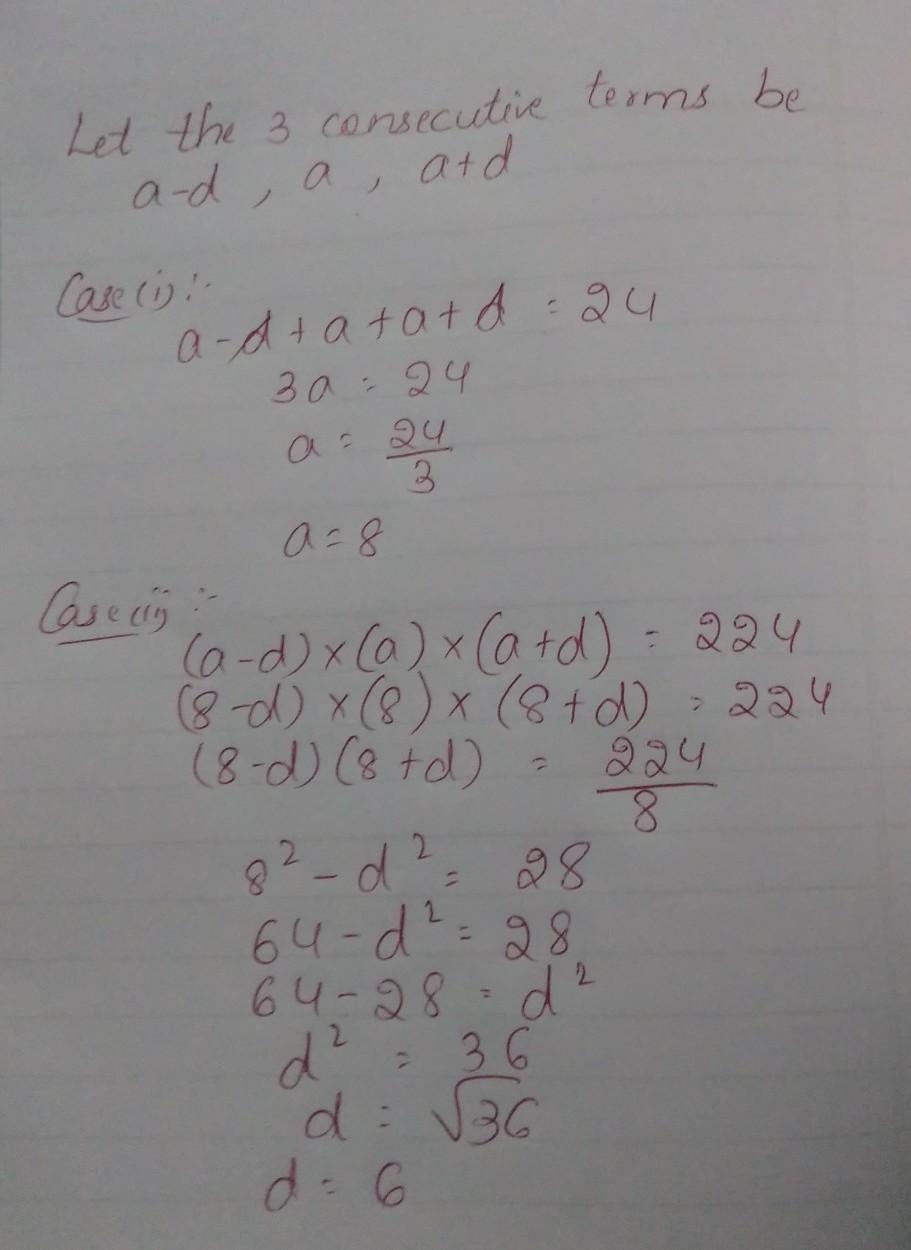 Let the 3 consecutive terms be
a-d , a , a+d
Case (i) :-
a-d+a+a+d = 24
3a = 24
a = 24/3
a = 8
Case (ii) :-
(a-d)×(a)×(a+d) = 224
(8-d)×(8)×(8+d) = 224
(8-d)(8+d) = 224/8
8² - d² = 28
64 - d² = 28
64 - 28 = d²
d² = 36
d = √36
d = 6